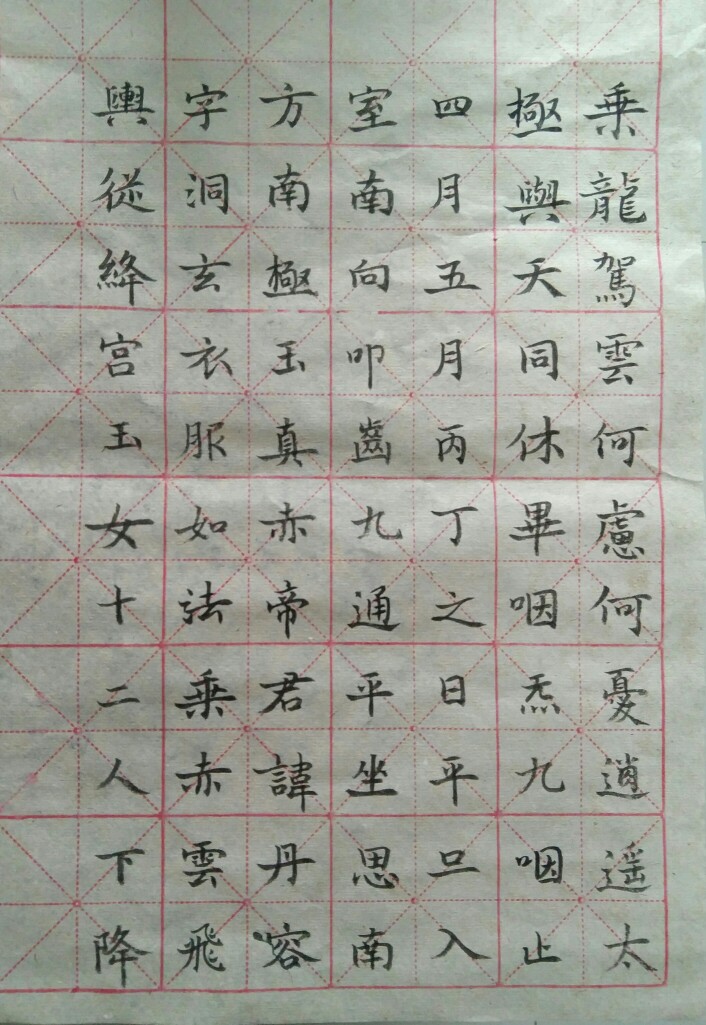 乘龍駕雲何慮何憂逍遥太
極與天同休畢咽炁九咽止
四月五月丙丁之日平旦入
室南向叩齒九通平坐思南
方南極玉真赤帝君諱丹容
字洞玄衣服如法乘赤雲飛
輿從絳宮玉女十二人下降